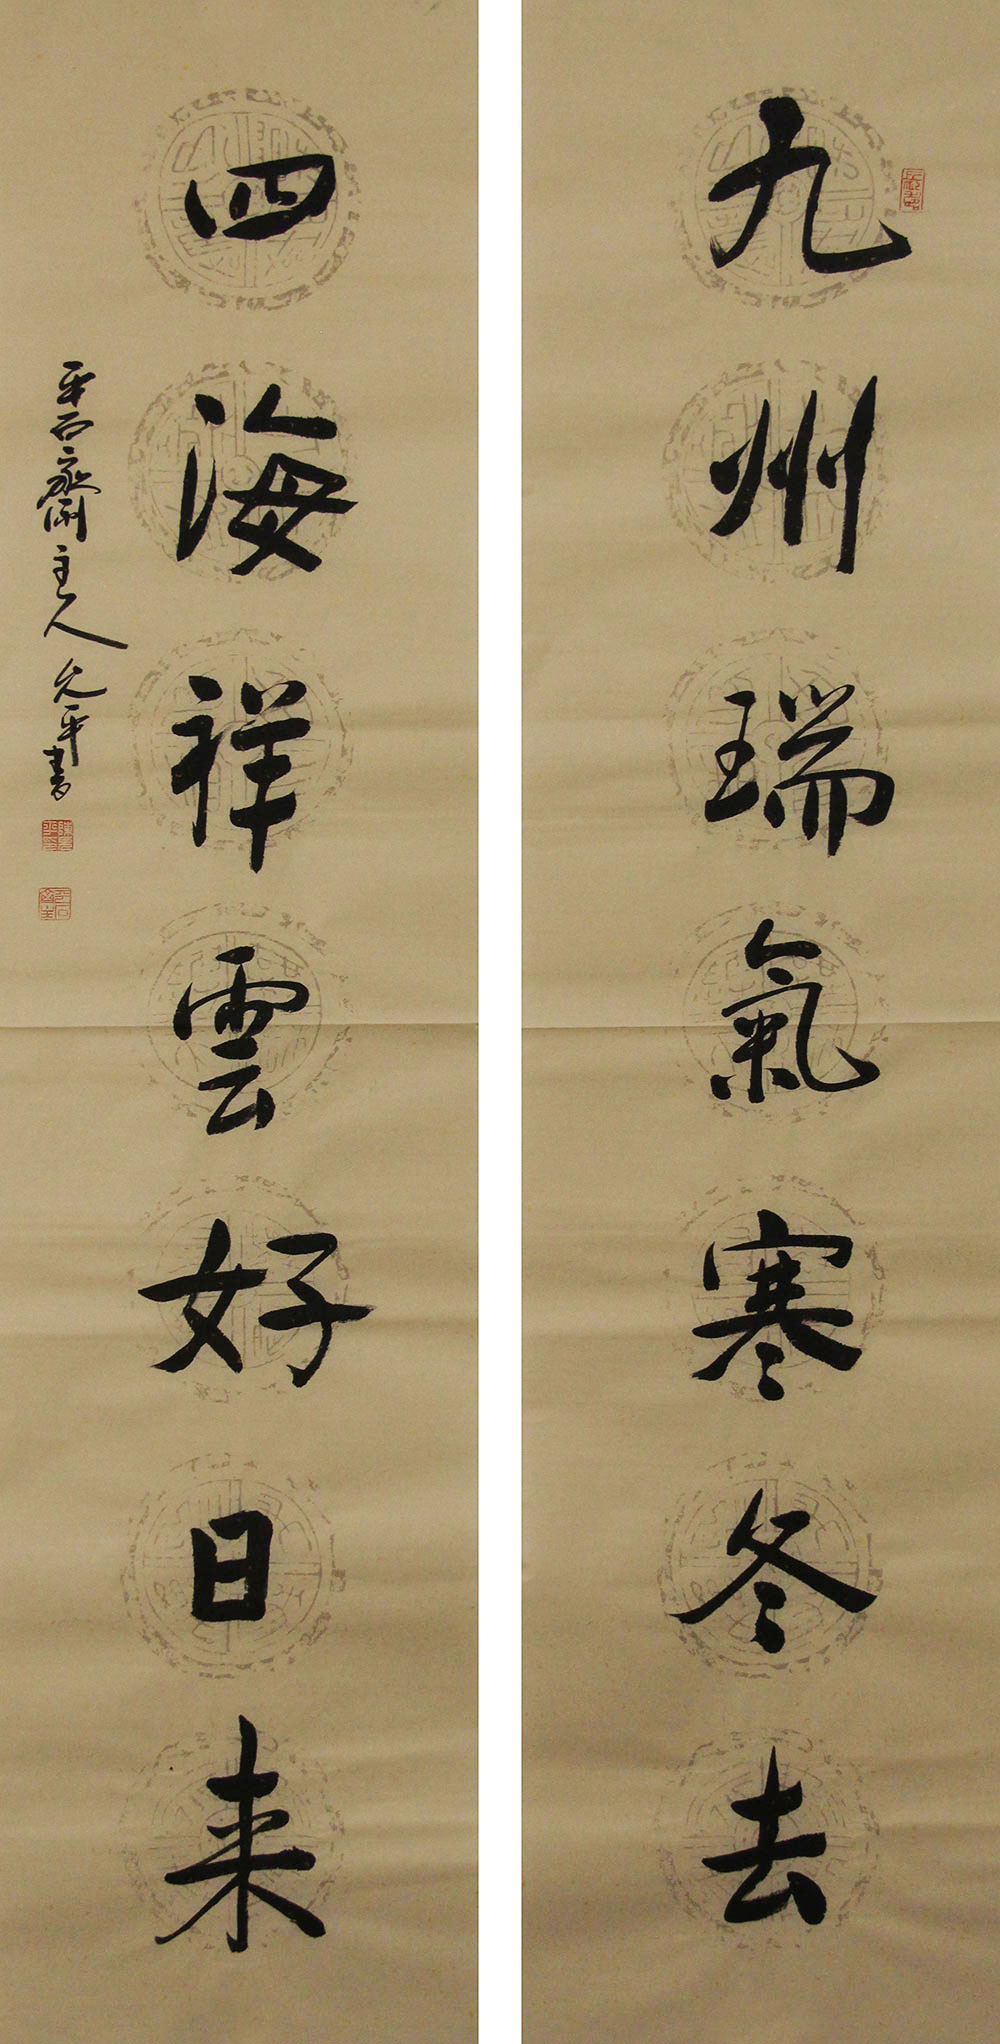 九州瑞氣寒冬去
四海祥雲好日来
平石齋主人允平書